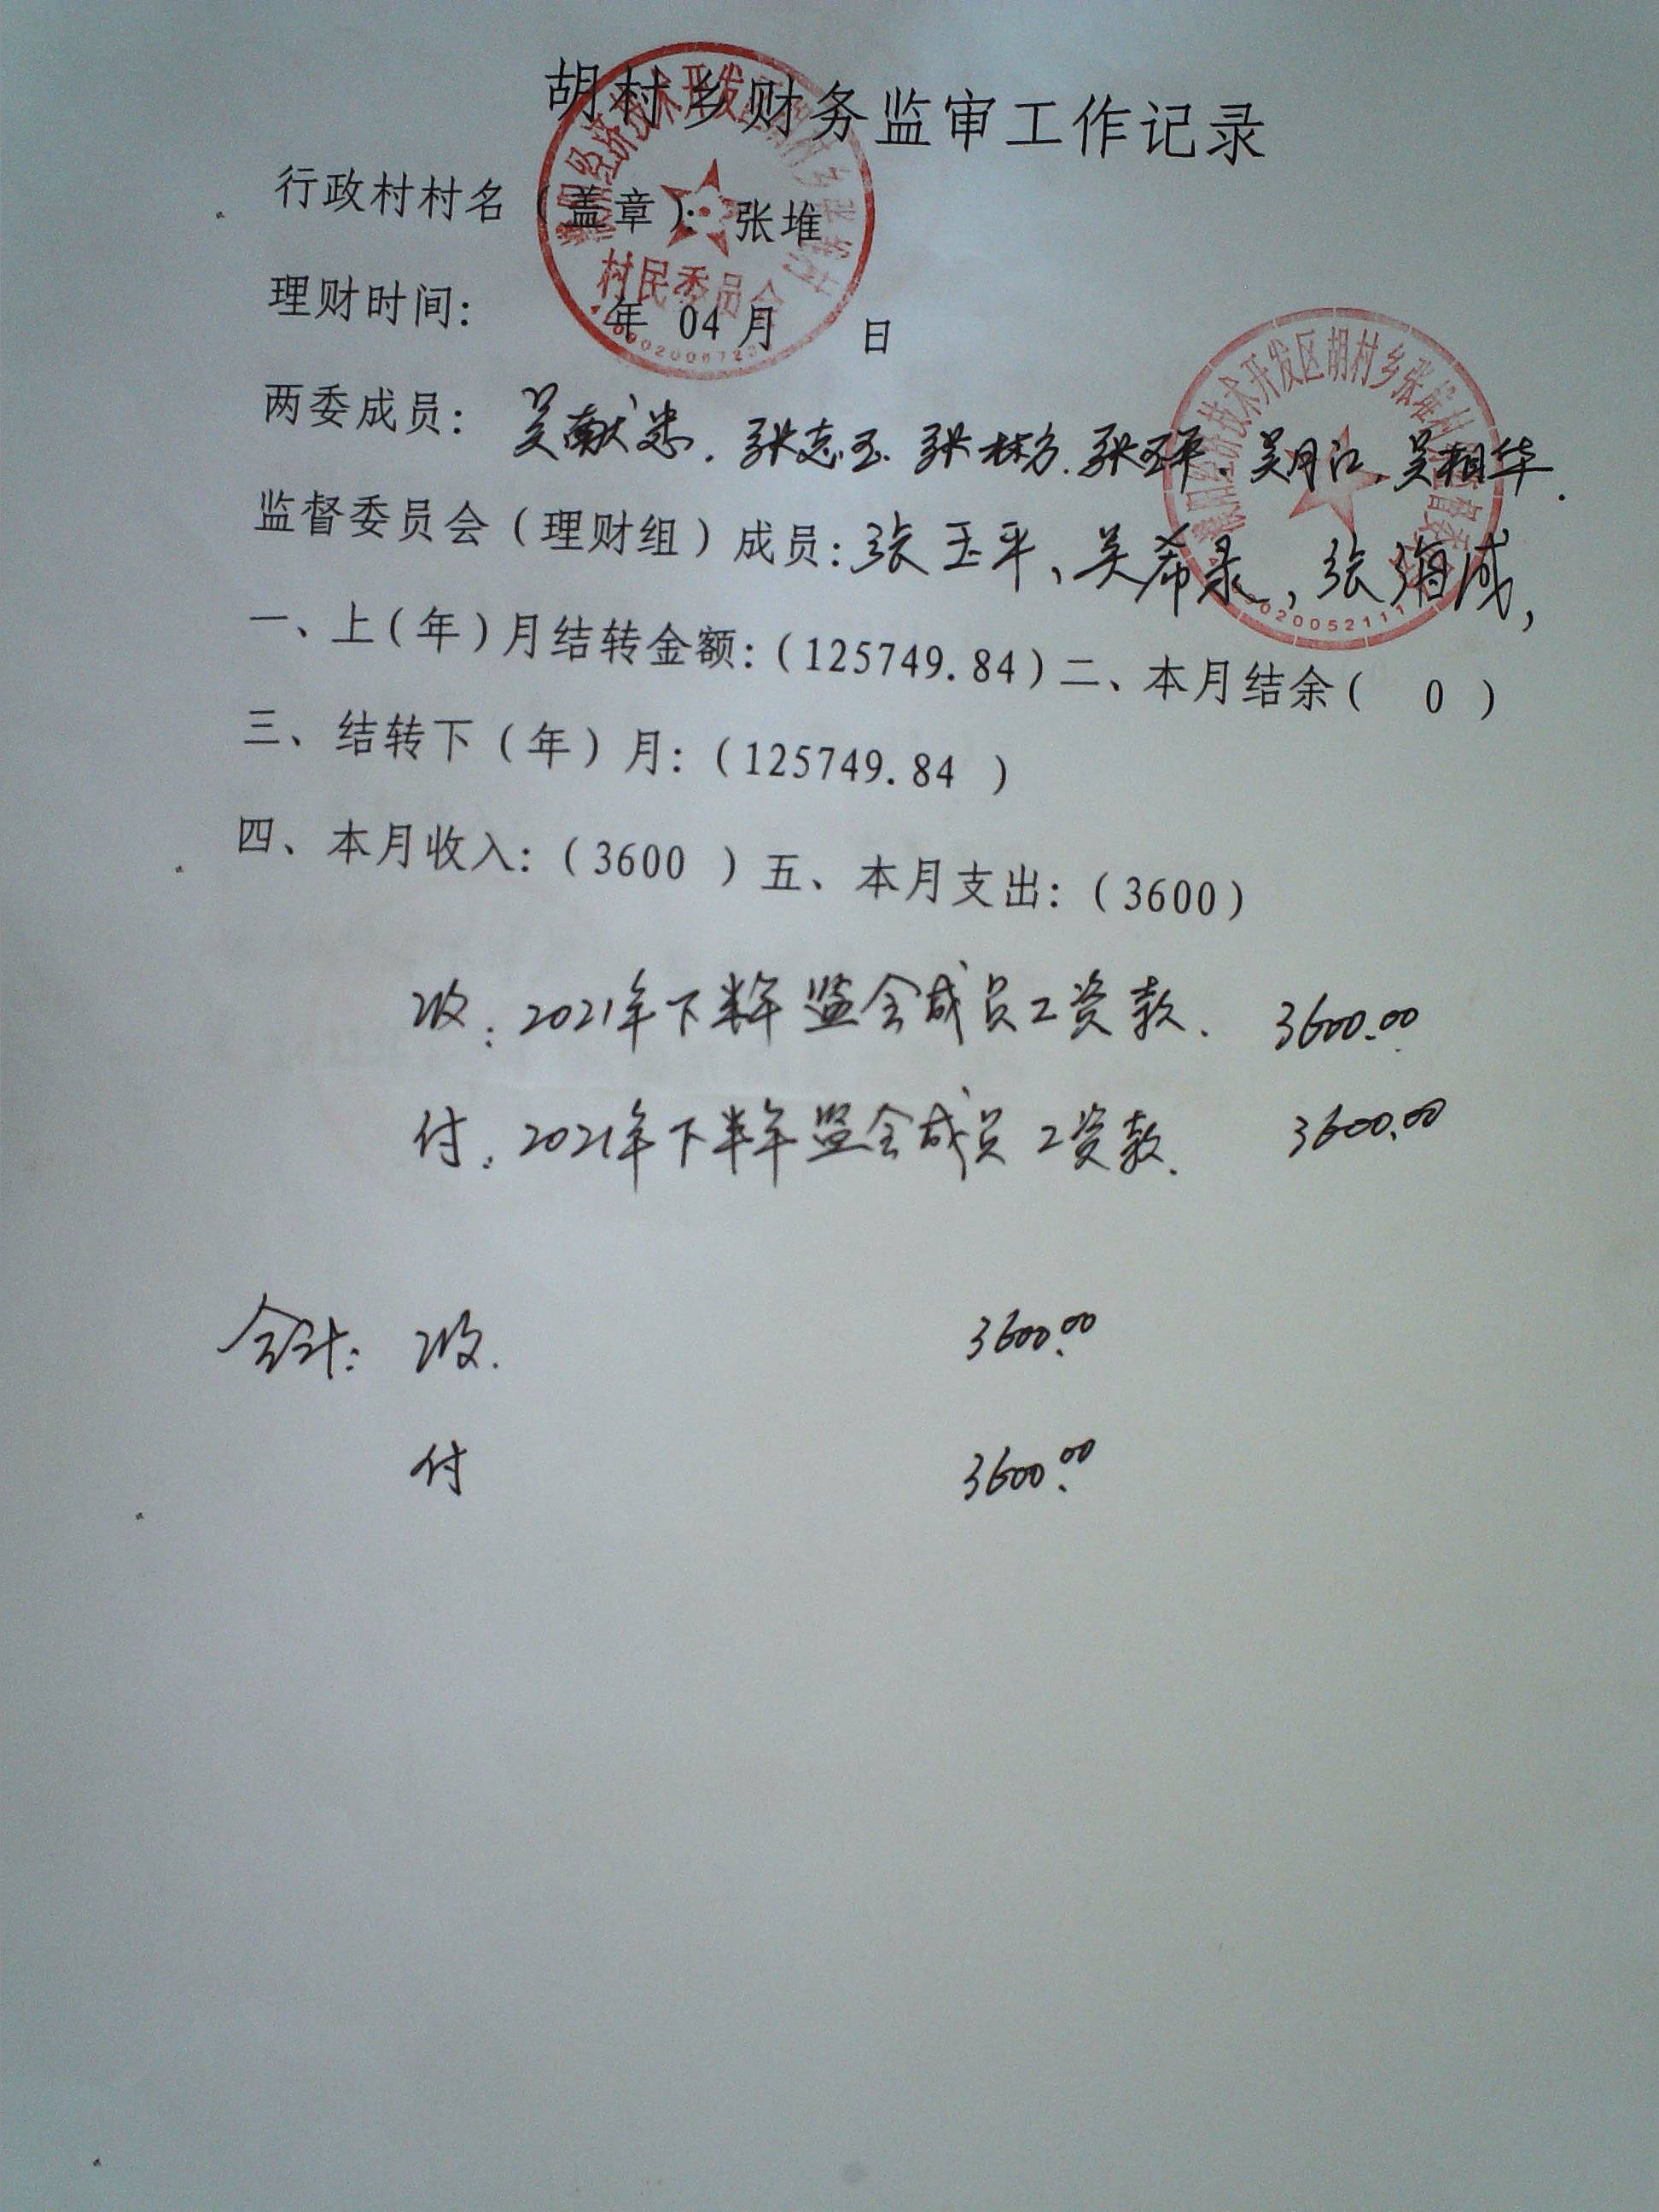 胡村乡财务监审工作记录
行政村村名（盖章）：张堆
理财时间： 年 04 月 日
村民委员会
两委成员：吴献忠．张志玉．张彬方．张玉平．吴月江．吴相华．
监督委员会（理财组）成员：张玉平、吴希录，张海成，
一、上（年）月结转金额：（125749.84）二、本月结余（ 0 ）
三、结转下（年）月：（125749.84 ）
四、本月收入：（3600 ）五、本月支出：（3600）
收：2021年下半年监会成员工资款． 3600.00
付：2021年下半年监会成员工资款． 3600.00
合计：收． 3600.00
付 3600.00